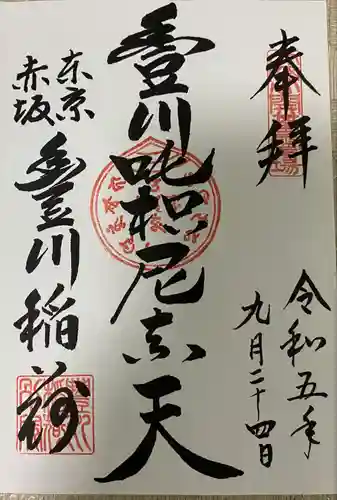 奉拝
令和五年
九月二十四日
豊川吒枳尼真天
東京
赤坂
豊川稲荷